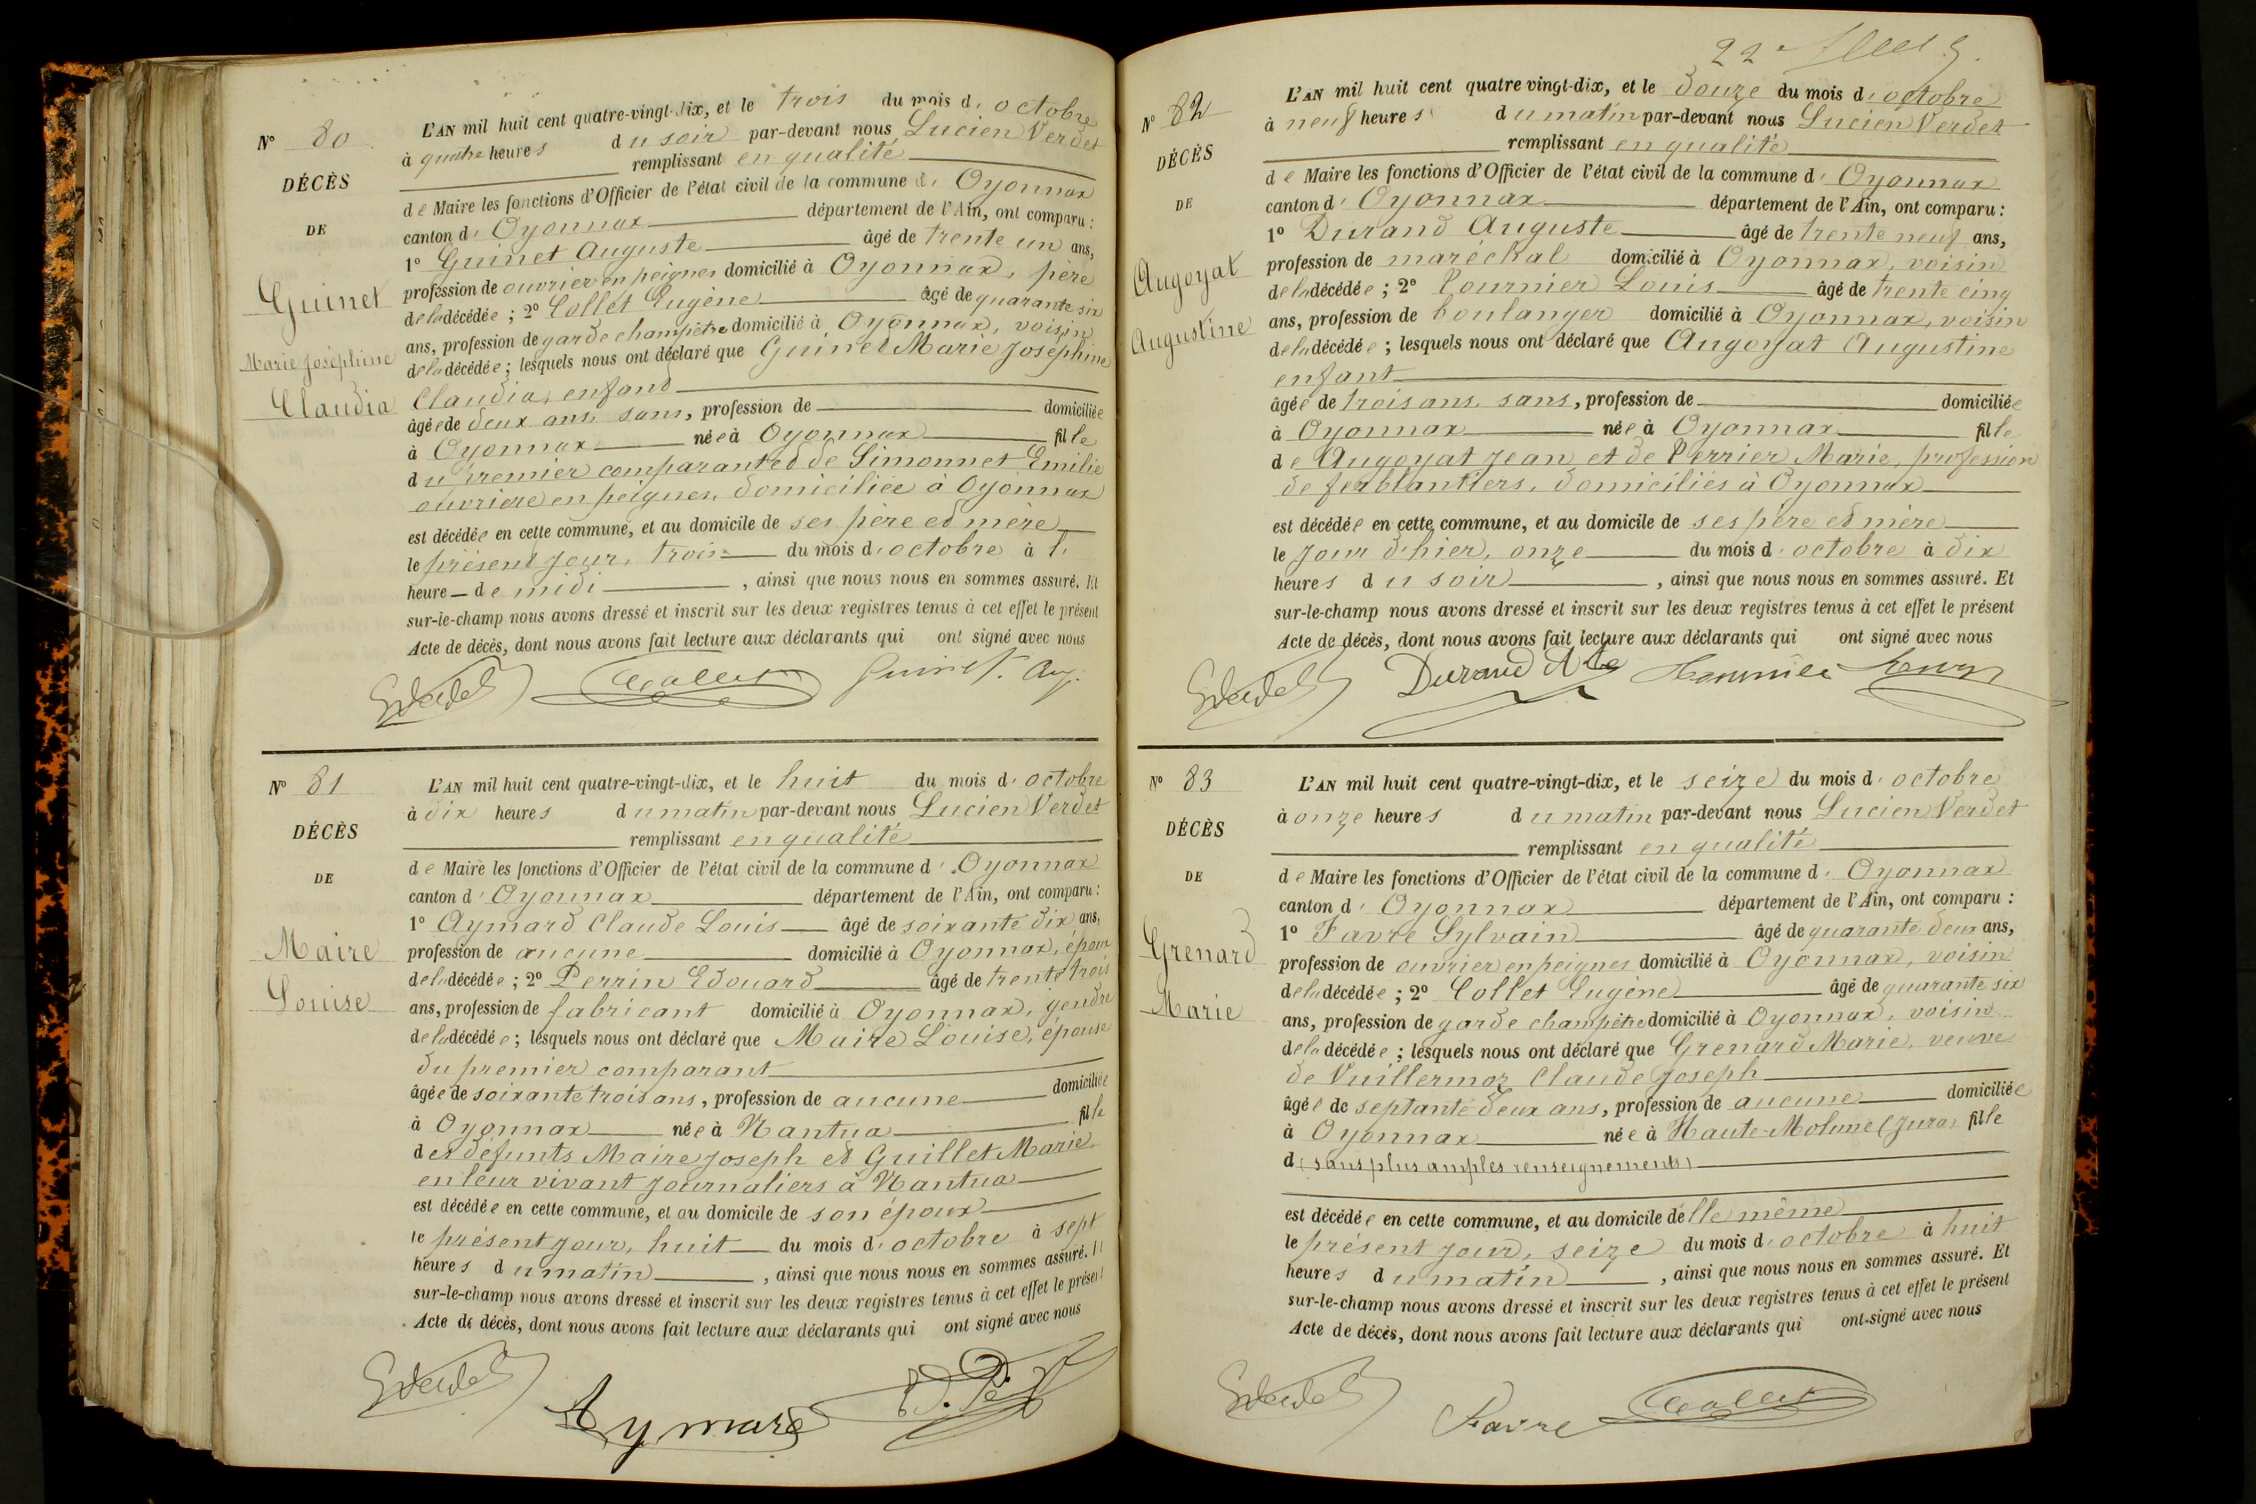 N° 80
DÉCÈS
DE
Guinet
Marie Joséphine
Claudia
L'AN mil huit cent quatre-vingt-dix, et le trois du mois d'octobre
à quatre heures du soir par-devant nous Lucien Verdet
remplissant en qualité
de Maire les fonctions d'Officier de l'état civil de la commune d'Oyonnax
canton d'Oyonnax département de l'Ain, ont comparu :
1° Guinet Auguste âgé de trente un ans,
profession de ouvrier en peignes domicilié à Oyonnax, père
de la décédée ; 2° Collet Eugène âgé de quarante six
ans, profession de garde champêtre domicilié à Oyonnax, voisin
de la décédée ; lesquels nous ont déclaré que Guinet Marie Joséphine
Claudia, enfand
âgée de deux ans, sans, profession de domiciliée
à Oyonnax née à Oyonnax fille
du premier comparant ed de Simonnet Emilie
ouvrière en peignes, domiciliée à Oyonnax
est décédée en cette commune, et au domicile de ses père ed mère
le présent jour, trois du mois d'octobre à l'
heure de midi, ainsi que nous nous en sommes assuré. Et
sur-le-champ nous avons dressé et inscrit sur les deux registres tenus à cet effet le présent
Acte de décès, dont nous avons fait lecture aux déclarants qui ont signé avec nous
Verdet Collet Guinet Aug.
N° 81
DÉCÈS
DE
Maire
Louise
L'AN mil huit cent quatre-vingt-dix, et le huit du mois d'octobre
à dix heures du matin par-devant nous Lucien Verdet
remplissant en qualité
de Maire les fonctions d'Officier de l'état civil de la commune d'Oyonnax
canton d'Oyonnax département de l'Ain, ont comparu :
1° Aymard Claude Louis âgé de soixante dix ans,
profession de aucune domicilié à Oyonnax, époux
de la décédée ; 2° Perrin Edouard âgé de trente trois
ans, profession de fabricant domicilié à Oyonnax, gendre
de la décédée ; lesquels nous ont déclaré que Maire Louise, épouse
du premier comparant
âgée de soixante trois ans, profession de aucune domiciliée
à Oyonnax née à Nantua fille
des défunts Maire Joseph ed Guillet Marie
en leur vivant journaliers à Nantua
est décédée en cette commune, et au domicile de son époux
le présent jour, huit du mois d'octobre à sept
heures du matin, ainsi que nous nous en sommes assuré. Et
sur-le-champ nous avons dressé et inscrit sur les deux registres tenus à cet effet le présent
Acte de décès, dont nous avons fait lecture aux déclarants qui ont signé avec nous
Verdet Aymard
22e
N° 82
DÉCÈS
DE
Augoyat
Augustine
L'AN mil huit cent quatre vingt-dix, et le douze du mois d'octobre
à neuf heures du matin par-devant nous Lucien Verdet
remplissant en qualité
de Maire les fonctions d'Officier de l'état civil de la commune d'Oyonnax
canton d'Oyonnax département de l'Ain, ont comparu :
1° Durand Auguste âgé de trente neuf ans,
profession de maréchal domicilié à Oyonnax, voisin
de la décédée ; 2° Fournier Louis âgé de trente cinq
ans, profession de boulanger domicilié à Oyonnax, voisin
de la décédée ; lesquels nous ont déclaré que Augoyat Augustine
enfant
âgée de trois ans, sans, profession de domiciliée
à Oyonnax née à Oyonnax fille
de Augoyat Jean et de Perrier Marie, profession
de ferblantiers, domiciliés à Oyonnax
est décédée en cette commune, et au domicile de ses père ed mère
le jour d'hier, onze du mois d'octobre à dix
heures du soir, ainsi que nous nous en sommes assuré. Et
sur-le-champ nous avons dressé et inscrit sur les deux registres tenus à cet effet le présent
Acte de décès, dont nous avons fait lecture aux déclarants qui ont signé avec nous
Verdet Durand Ate
N° 83
DÉCÈS
DE
Grenard
Marie
L'AN mil huit cent quatre-vingt-dix, et le seize du mois d'octobre
à onze heures du matin par-devant nous Lucien Verdet
remplissant en qualité
de Maire les fonctions d'Officier de l'état civil de la commune d'Oyonnax
canton d'Oyonnax département de l'Ain, ont comparu :
1° Favre Sylvain âgé de quarante deux ans,
profession de ouvrier en peignes domicilié à Oyonnax, voisin
de la décédée ; 2° Collet Eugène âgé de quarante six
ans, profession de garde champêtre domicilié à Oyonnax, voisin
de la décédée ; lesquels nous ont déclaré que Grenard Marie, veuve
de Vuillermoz Claude Joseph
âgée de septante deux ans, profession de aucune domiciliée
à Oyonnax née à Haute-Molune (Jura) fille
d (sans plus amples renseignements)
est décédée en cette commune, et au domicile d'elle même
le présent jour, seize du mois d'octobre à huit
heures du matin, ainsi que nous nous en sommes assuré. Et
sur-le-champ nous avons dressé et inscrit sur les deux registres tenus à cet effet le présent
Acte de décès, dont nous avons fait lecture aux déclarants qui ont signé avec nous
Verdet Favre Collet